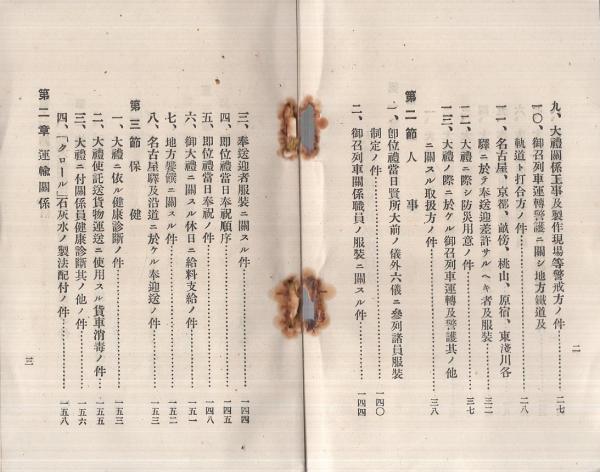 九、大禮關係工事及製作現場等警戒方ノ件…………二七
一〇、御召列車運轉警護ニ關シ地方鐵道及
軌道ト打合方ノ件…………二八
一一、名古屋、京都、畝傍、桃山、原宿、東淺川各
驛ニ於テ奉送迎差許サルヘキ者及服裝…………三二
一二、大禮ニ際シ防災用意ノ件…………三七
一三、大禮ノ際ニ於ケル御召列車運轉及警護其ノ他
ニ關スル取扱方ノ件…………三八
第二節 人事
一、卽位禮當日賢所大前ノ儀外六儀ニ參列諸員服裝
制定ノ件…………一四〇
二、御召列車關係職員ノ服裝ニ關スル件…………一四四
二
三、奉送迎者服裝ニ關スル件…………一四四
四、卽位禮當日奉祝順序…………一四五
五、卽位禮當日奉祝ノ件…………一四八
六、御大禮ニ關スル休日ニ給料支給ノ件…………一五一
七、地方饗饌ニ關スル件…………一五二
八、名古屋驛及沿道ニ於ケル奉迎送ノ件…………一五三
第三節 保健
一、大禮ニ依ル健康診斷ノ件…………一五三
二、大禮使託送貨物運送ニ使用スル貨車消毒ノ件…………一五五
三、大禮ニ付關係員健康診斷其ノ他ノ件…………一五六
四、「クロール」石灰水ノ製法配付ノ件…………一五八
第二章 運輸關係
三